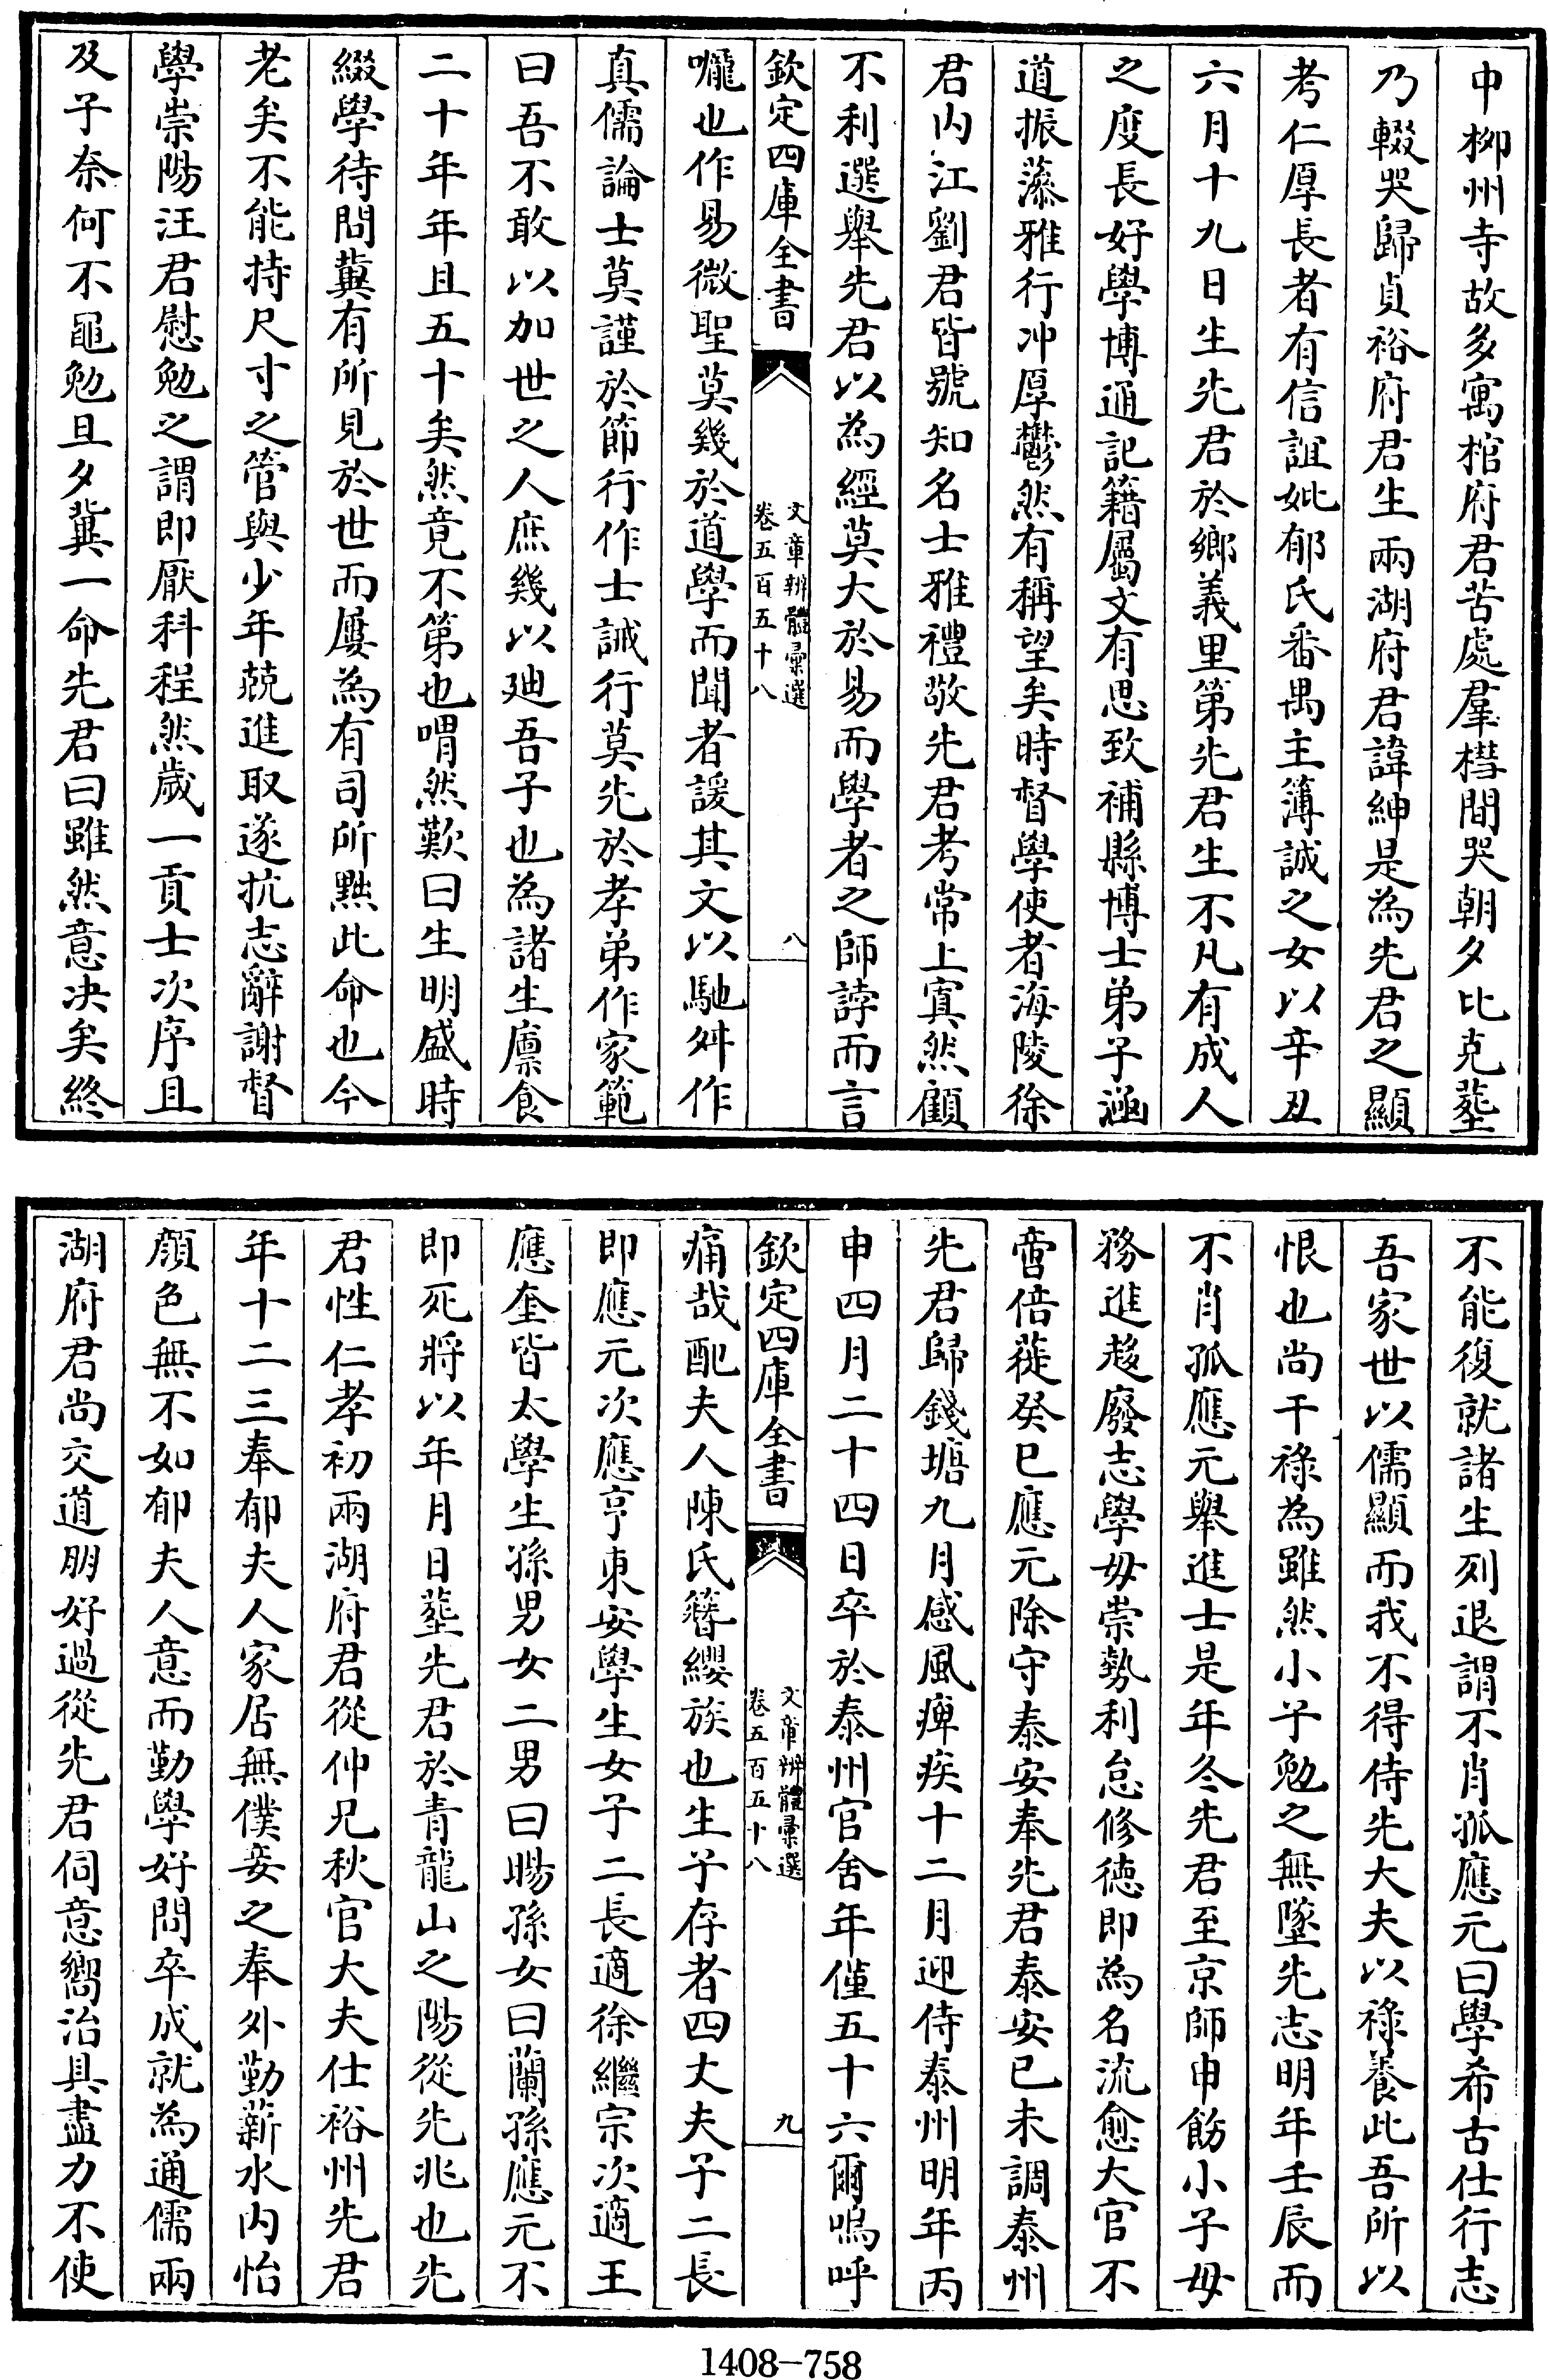 中柳州寺故多寓棺府君苦處羣槥間哭朝夕比克塟
乃輟哭歸貞裕府君生兩湖府君諱紳是為先君之顯
考仁厚長者有信誼妣郁氏番禺主簿誠之女以辛丑
六月十九日生先君於鄉義里第先君生不凡有成人
之度長好學博通記籍屬文有思致補縣博士弟子涵
道振藻雅行冲厚鬱然有稱望矣時督學使者海陵徐
君内江劉君皆號知名士雅禮敬先君考常上寘然顧
不利選舉先君以為經莫大於易而學者之師誖而言
欽定四庫全書
文章辨體彚選
卷五百五十八
八
嚨也作易微聖莫幾於道學而聞者諼其文以馳舛作
真儒論士莫謹於節行作士誡行莫先於孝弟作家範
曰吾不敢以加世之人庶幾以廸吾子也為諸生廪食
二十年年且五十矣然竟不第也喟然歎曰生明盛時
綴學待問冀有所見於世而屢為有司所黜此命也今
老矣不能持尺寸之管與少年兢進取遂抗志辭謝督
學崇陽汪君慰勉之謂即厭科程然歲一貢士次序且
及子奈何不黽勉旦夕冀一命先君曰雖然意决矣終
不能復就諸生列退謂不肖孤應元曰學希古仕行志
吾家世以儒顯而我不得侍先大夫以祿養此吾所以
恨也尚干祿為雖然小子勉之無墜先志明年壬辰而
不肖孤應元舉進士是年冬先君至京師申飭小子毋
務進趍廢志學毋崇勢利怠修徳即為名流愈大官不
啻倍蓰癸巳應元除守泰安奉先君泰安已未調泰州
先君歸錢塘九月感風痺疾十二月迎侍泰州明年丙
申四月二十四日卒於泰州官舍年僅五十六爾嗚呼
欽定四庫全書
文章辨體彚選
卷五百五十八
九
痛哉配夫人陳氏簪纓族也生子存者四丈夫子二長
即應元次應亨東安學生女子二長適徐繼宗次適王
應奎皆太學生孫男女二男曰暘孫女曰蘭孫應元不
即死將以年月日塟先君於青龍山之陽從先兆也先
君性仁孝初兩湖府君從仲兄秋官大夫仕裕州先君
年十二三奉郁夫人家居無僕妾之奉外勤薪水内怡
顔色無不如郁夫人意而勤學好問卒成就為通儒兩
湖府君尚交道朋好過從先君伺意嚮治具盡力不使
1408-758